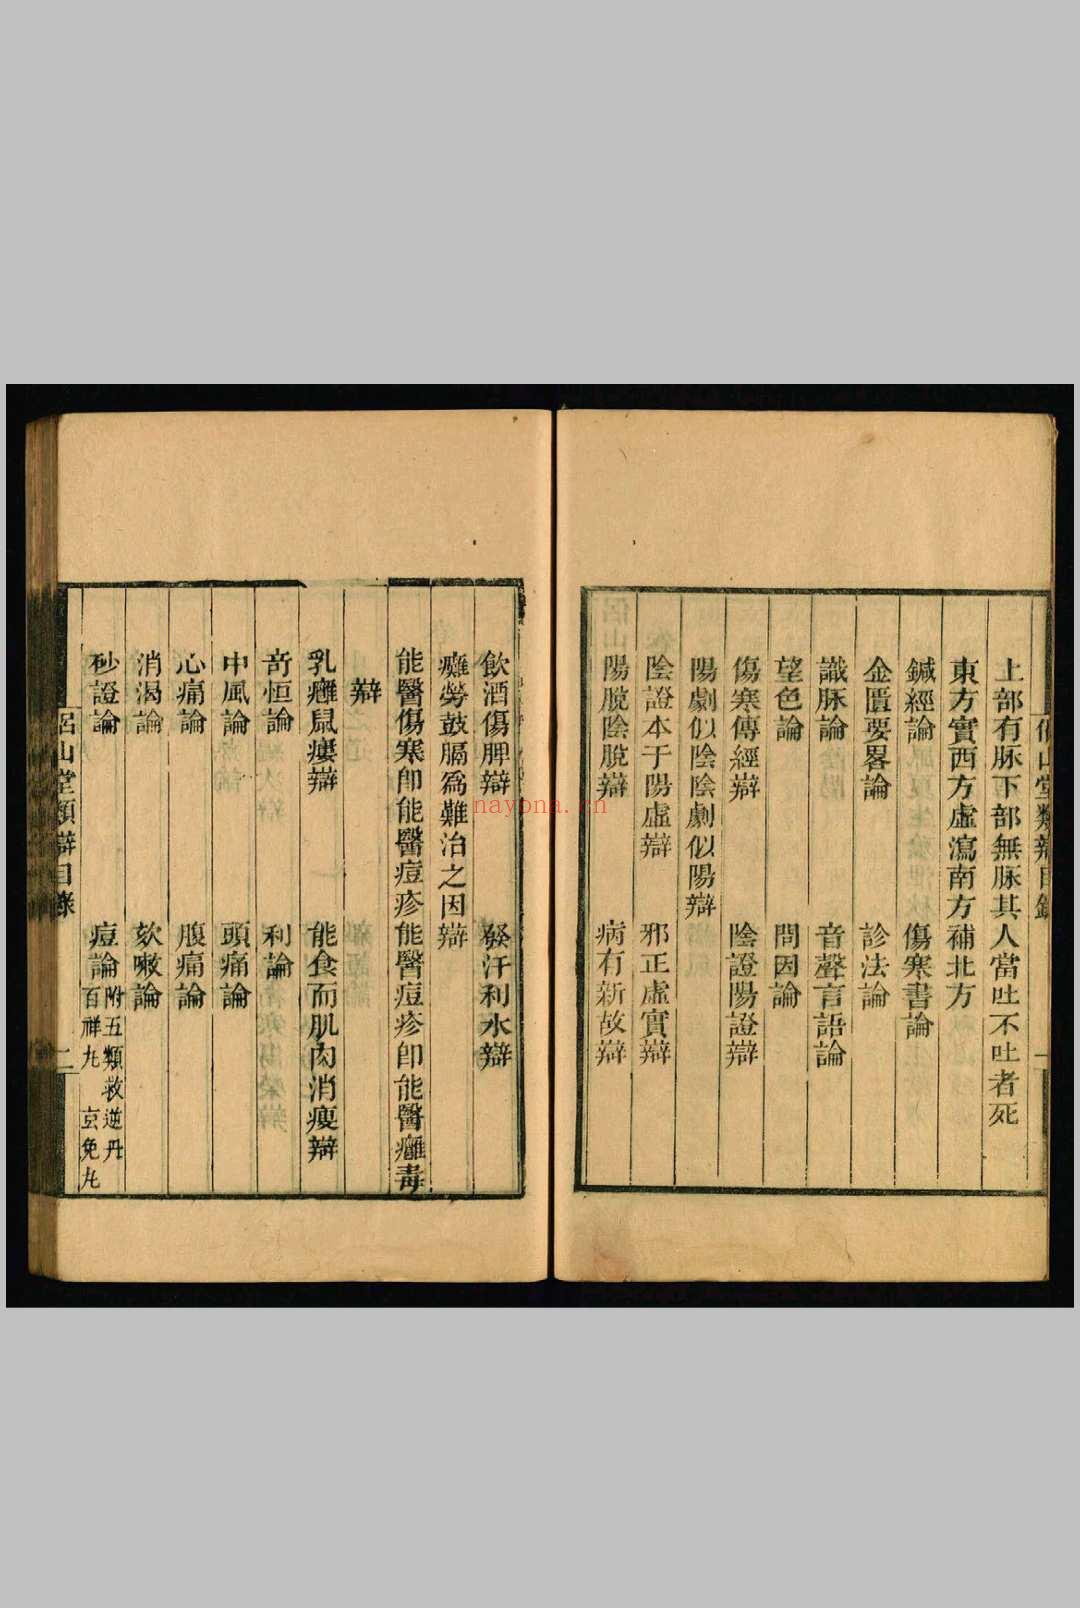 侶山堂類辯目錄
一
上部有脉下部無脉其人當吐不吐者死
東方實西方虛瀉南方補北方
鍼經論 傷寒書論
金匱要畧論 診法論
識脉論 音聲言語論
望色論 問因論
傷寒傳經辯 陰證陽證辯
陽劇似陰陰劇似陽辯
陰證本于陽虛辯 邪正虛實辯
陽脫陰脫辯 病有新故辯
飲酒傷脾辯 發汗利水辯
癰勞鼓膈爲難治之因辯
能醫傷寒卽能醫痘疹能醫痘疹卽能醫癰毒
辯
乳癰鼠瘻辯 能食而肌肉消瘦辯
奇恒論 利論
中風論 頭痛論
心痛論 腹痛論
消渴論 欬嗽論
痧證論 痘論 附五類救逆丹
百祥丸 京免丸
侶山堂類辯目錄
二
nayona.cn